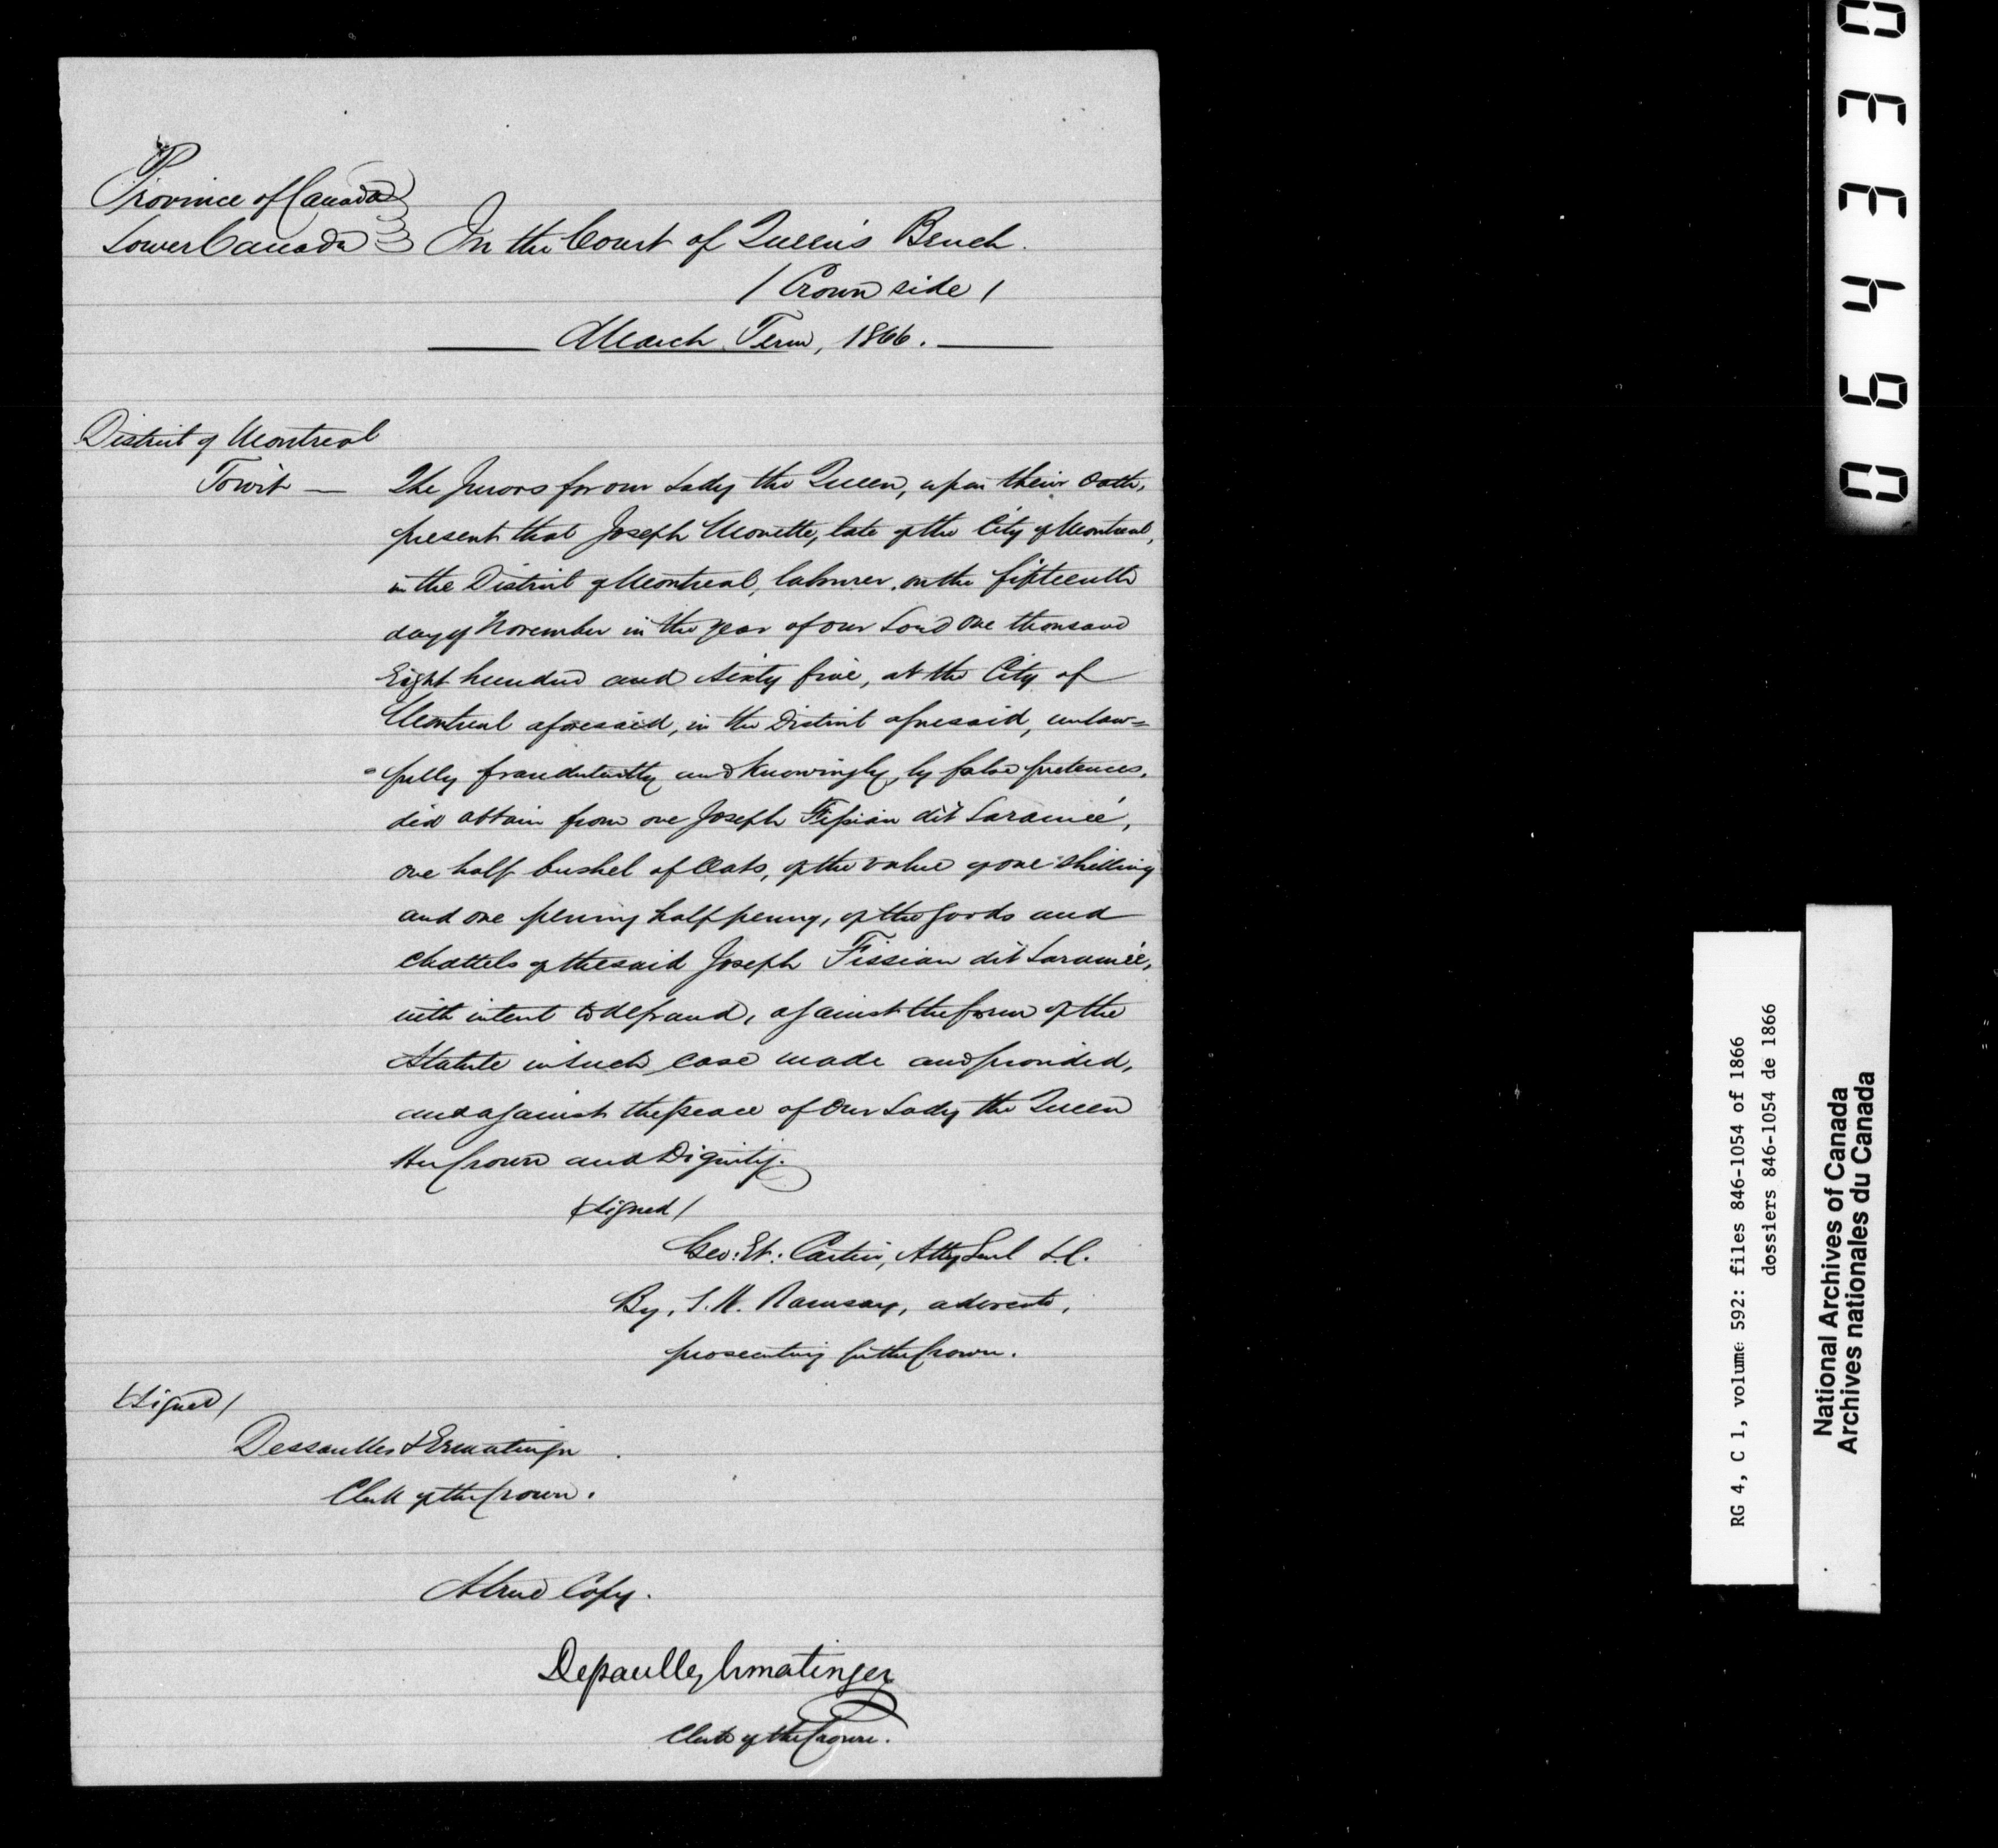 Province of Canada
Lower Canada
In the Court of Queen's Bench.
/ Crown side /
March Term, 1866.
District of Montreal
Towit —
The Jurors for our Lady the Queen, upon their Oath,
present that Joseph Monette, late of the City of Montreal,
in the District of Montreal, labourer, on the fifteenth
day of November in the year of our Lord One thousand
Eight hundred and sixty five, at the City of
Montreal aforesaid, in the District aforesaid, unlaw=
=fully fraudulently and knowingly, by false pretences,
did obtain from one Joseph Fissian dit Laramée,
one half bushel of Oats, of the value of one shilling
and one penny half penny, of the goods and
Chattels of the said Joseph Fissian dit Laramée,
with intent to defraud, against the form of the
Statute in such case made and provided,
and against the peace of Our Lady the Queen
Her Crown and Dignity.
/Signed/
Geo: Et. Cartier, Atty Genl L.C.
By, T. K. Ramsay, advocate,
prosecuting for the Crown.
/Signed/
Dessaulles & Ermatinger
Clerk of the Crown.
A true Copy.
Dessaulles Ermatinger
Clerk of the Crown.
064330
RG 4, C 1, volume 592: files 846-1054 of 1866
dossiers 846-1054 de 1866
National Archives of Canada
Archives nationales du Canada